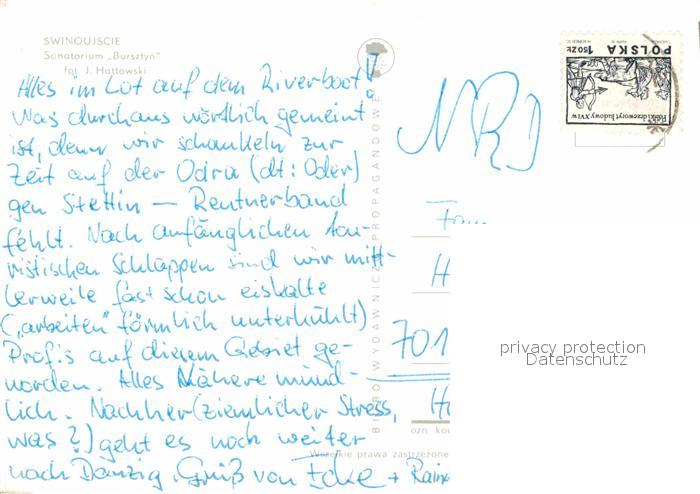 SWINOUJSCIE
Sanatorium „Bursztyn"
fot. J. Hattowski
Alles im Lot auf dem Riverboot!
Was durchaus wörtlich gemeint
ist, denn wir schaukeln zur
Zeit auf der Odra (dt: Oder)
gen Stettin — Rentnerband
fehlt. Nach anfänglichen tou-
ristischen Schlappen sind wir mitt-
lerweile fast schon eiskalte
(„arbeiten" förmlich unterkühlt)
Prof.s auf diesem Gebiet ge-
worden. Alles Nähere münd-
lich. Nachher (ziemlicher Stress,
was?) geht es noch weiter
nach Danzig. Gruß von Ecke + Rain
BIURO WYDAWNICZO PROPAGANDOWE
Wszelkie prawa zastrzeżone
POLSKA 1.50 ZŁ
Polski drzeworyt ludowy XVI w.
NRD
Fr...
H
701
H
ozn kod
privacy protection
Datenschutz